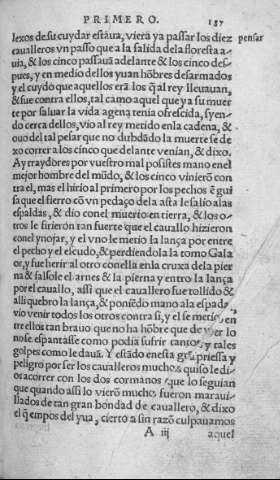 PRIMERO. 187
lexos de su cuydar estaua, viera ya passar los diez pensar
caualleros vn passo que a la salida dela floresta a-
uia, & los cinco passauã adelante & los cinco des-
pues, y en medio dellos yuan hõbres desarmados
y el cuydo que aquellos erã los q̃ al rey lleuauan,
& fue contra ellos, tal camo aquel que ya su muer
te por saluar la vida agena tenia ofrescida, syen-
do cerca dellos, vio al rey metido en la cadena, &
ouo del tal pesar que no dubdãdo la muerte se de
xo correr a los cinco que delante venian, & dixo.
Ay traydores por vuestro mal posistes mano en el
mejor hombre del mũdo, & los cinco vinierõ con
tra el, mas el hirio al primero por los pechos ẽ gui
sa que el fierro cõ vn pedaço dela asta le salio alas
espaldas, & dio conel muerto en tierra, & los o-
tros le firieron tan fuerte que el cauallo hizieron
conel ynojar, y el vno le metio la lança por entre
el pecho y el escudo, & perdiendola la tomo Gala
or, y fue herir al otro conella enla cruxa dela pier
na & falsole el arnes & la pierna y entro la lança
por el cauallo, assi que el cauallero fue tollido &
alli quebro la lança, & poniẽdo mano ala espada
vio venir todos los otros contra si, y el se metio en
tre ellos tan brauo que no ha hõbre que de ver lo
no se espantasse como podia sufrir tantos y tales
golpes como le dauã. Y estãdo en esta grã priessa y
peligro por ser los caualleros muchos quiso le di-
os acorrer con los dos cormanos que lo seguian
que quando assi lo vierõ mucho fueron maraui-
llados de tan gran bondad de cauallero, & dixo
el q̃ en pos del yua, cierto a sin razõ culpauamos
A iij aquel